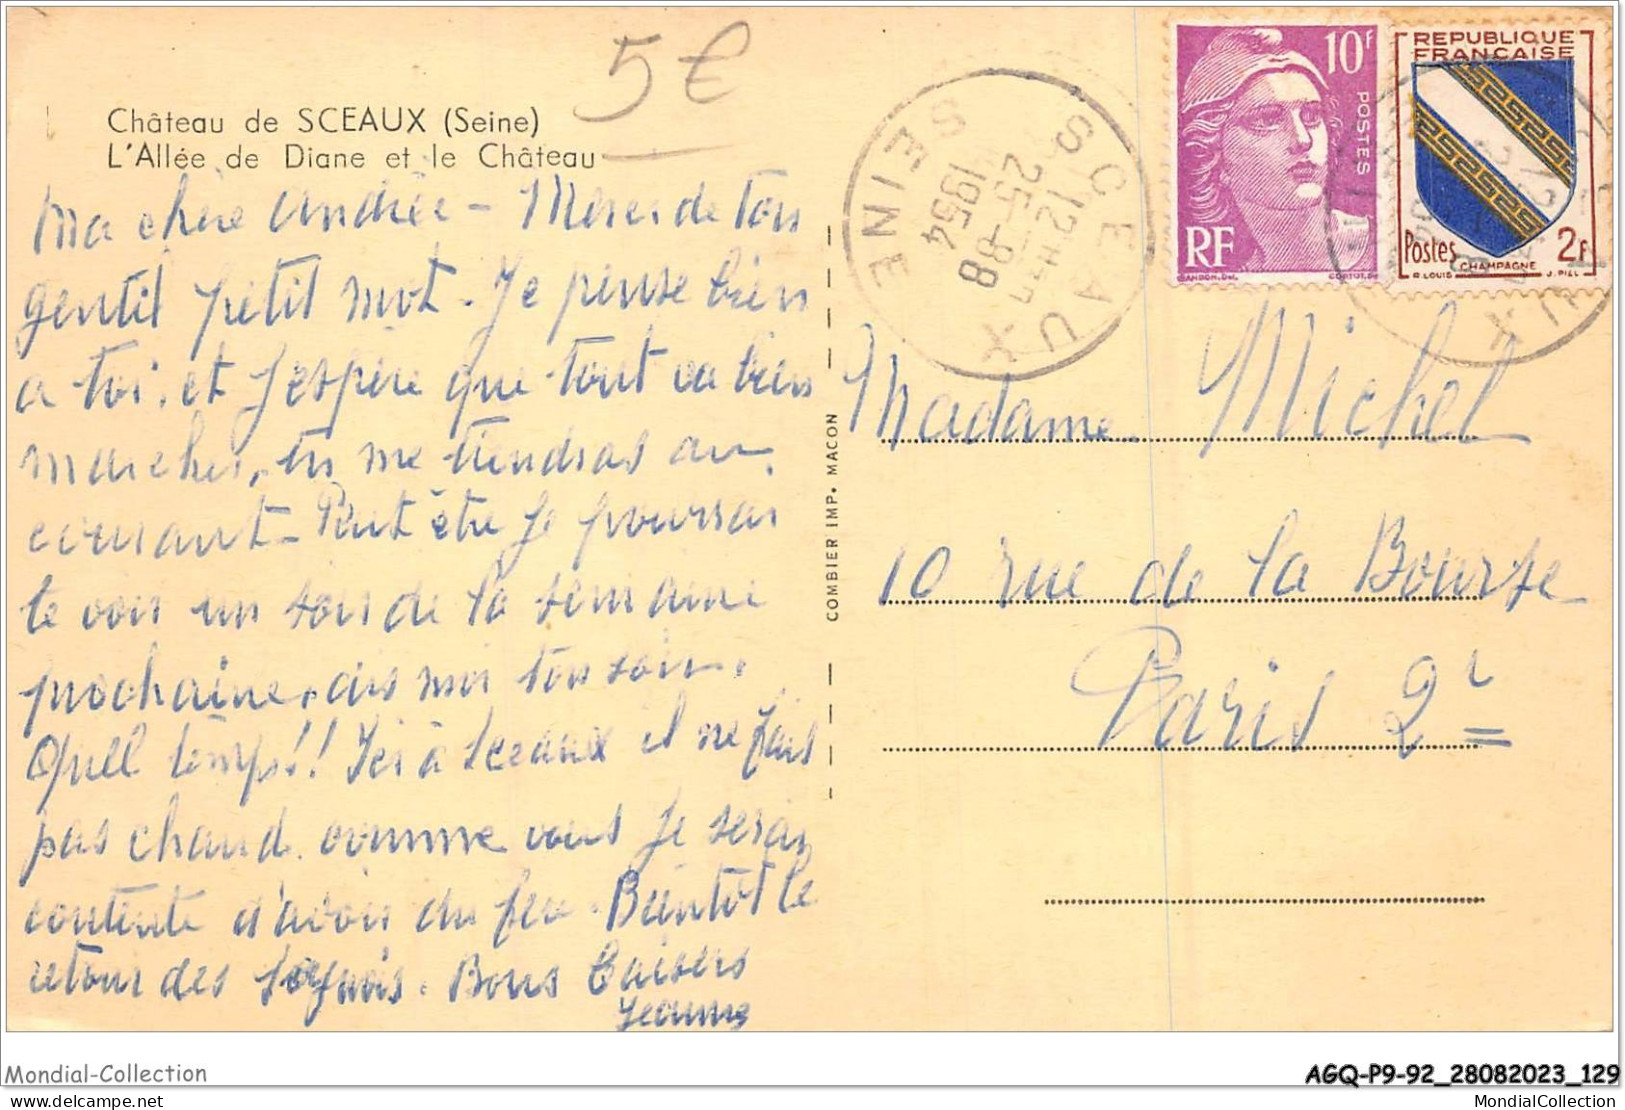 5€
Château de SCEAUX (Seine)
L'Allée de Diane et le Château
Ma chère Andrée - Merci de ton
gentil petit mot - Je pense bien
a toi, et j'espère que tout va bien
marcher, tu me tiendras au
courant - Peut être je pourrai
te voir un soir de la semaine
prochaine, dis moi ton soir.
Quel temps!! Ici à Sceaux il ne fait
pas chaud. comme vous je serai
contente d'avoir du feu. Bientôt le
retour des . Bons Baisers
Jeanne
COMBIER IMP. MACON
SCEAUX
12H
25-8
1954
SEINE
10F
POSTES
RF
GANDON.Del.
CORTOT.SC
REPUBLIQUE
FRANÇAISE
Postes
2F
CHAMPAGNE
R. LOUIS
J. PIEL
Madame Michel
10 rue de la Bourse
Paris 2e
Mondial-Collection
AGQ-P9-92_28082023_129
delcampe.net
MondialCollection